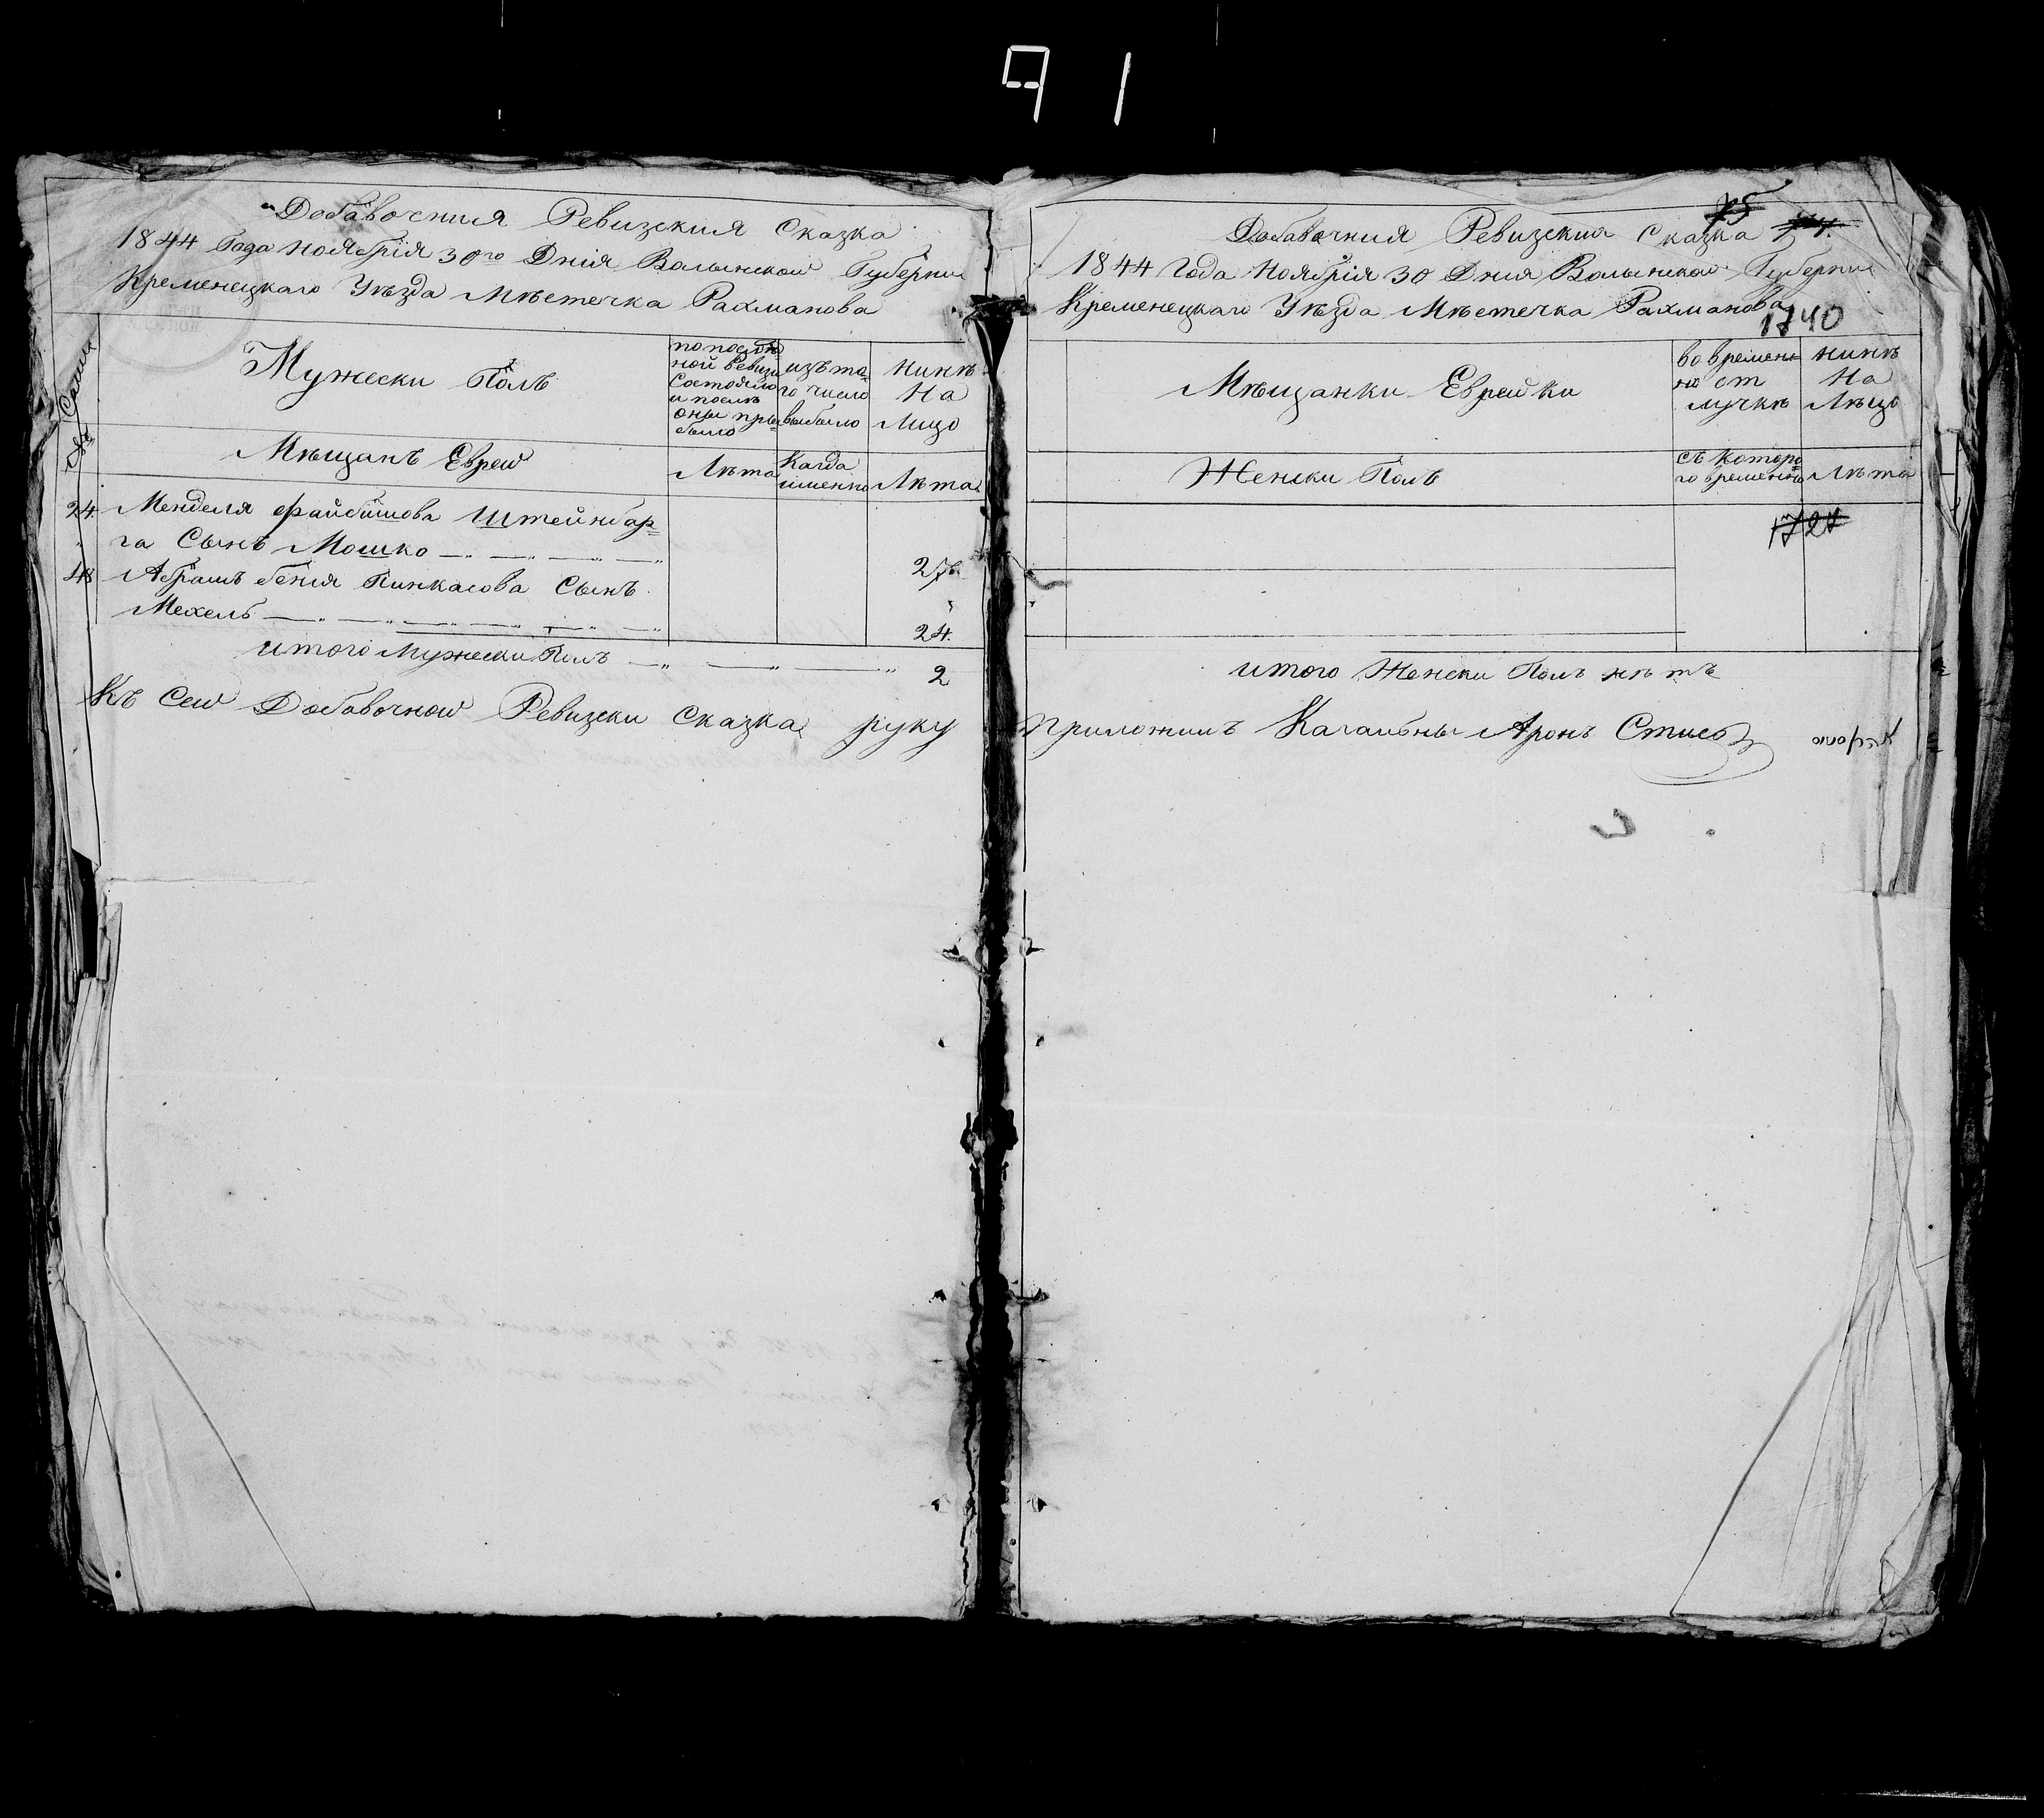 91
Добавочния Ревизския Сказка
1844 Года Ноябрія 30го Днія Волынской Губернии
Кременецкаго Уѣзда Мѣстечка Рахманова
Мужески Полъ
по послѣд=
ной Ревизи
Состояло
и послѣ
оны при=
было
изъ та=
го число
выбыло
Нинѣ
На
Лицо
Мѣщанъ Еврей
Лѣта
Кагда
именно
Лѣта
24. Менделя Файбишова Штейнбар=
га Сынъ Мошко 27
48 Абрамъ беня Пинкасова Сынъ
Мехель 24.
итого Мужески Полъ 2
Къ Сей Добавочной Ревизски Сказка руку
75
Добавочния Ревизския Сказка
1844 Года Ноябрія 30 Дния Волынской Губернии
Кременецкаго Уѣзда Мѣстечка Рахманова
1740
Мѣщанки Еврейки
во времен=
но от
лучкѣ
нинѣ
На
Лѣцо
Женски Полъ
съ которо
го времени
Лѣта
1727
итого Женски Полъ нѣтъ
приложилъ Кагальны Аронъ